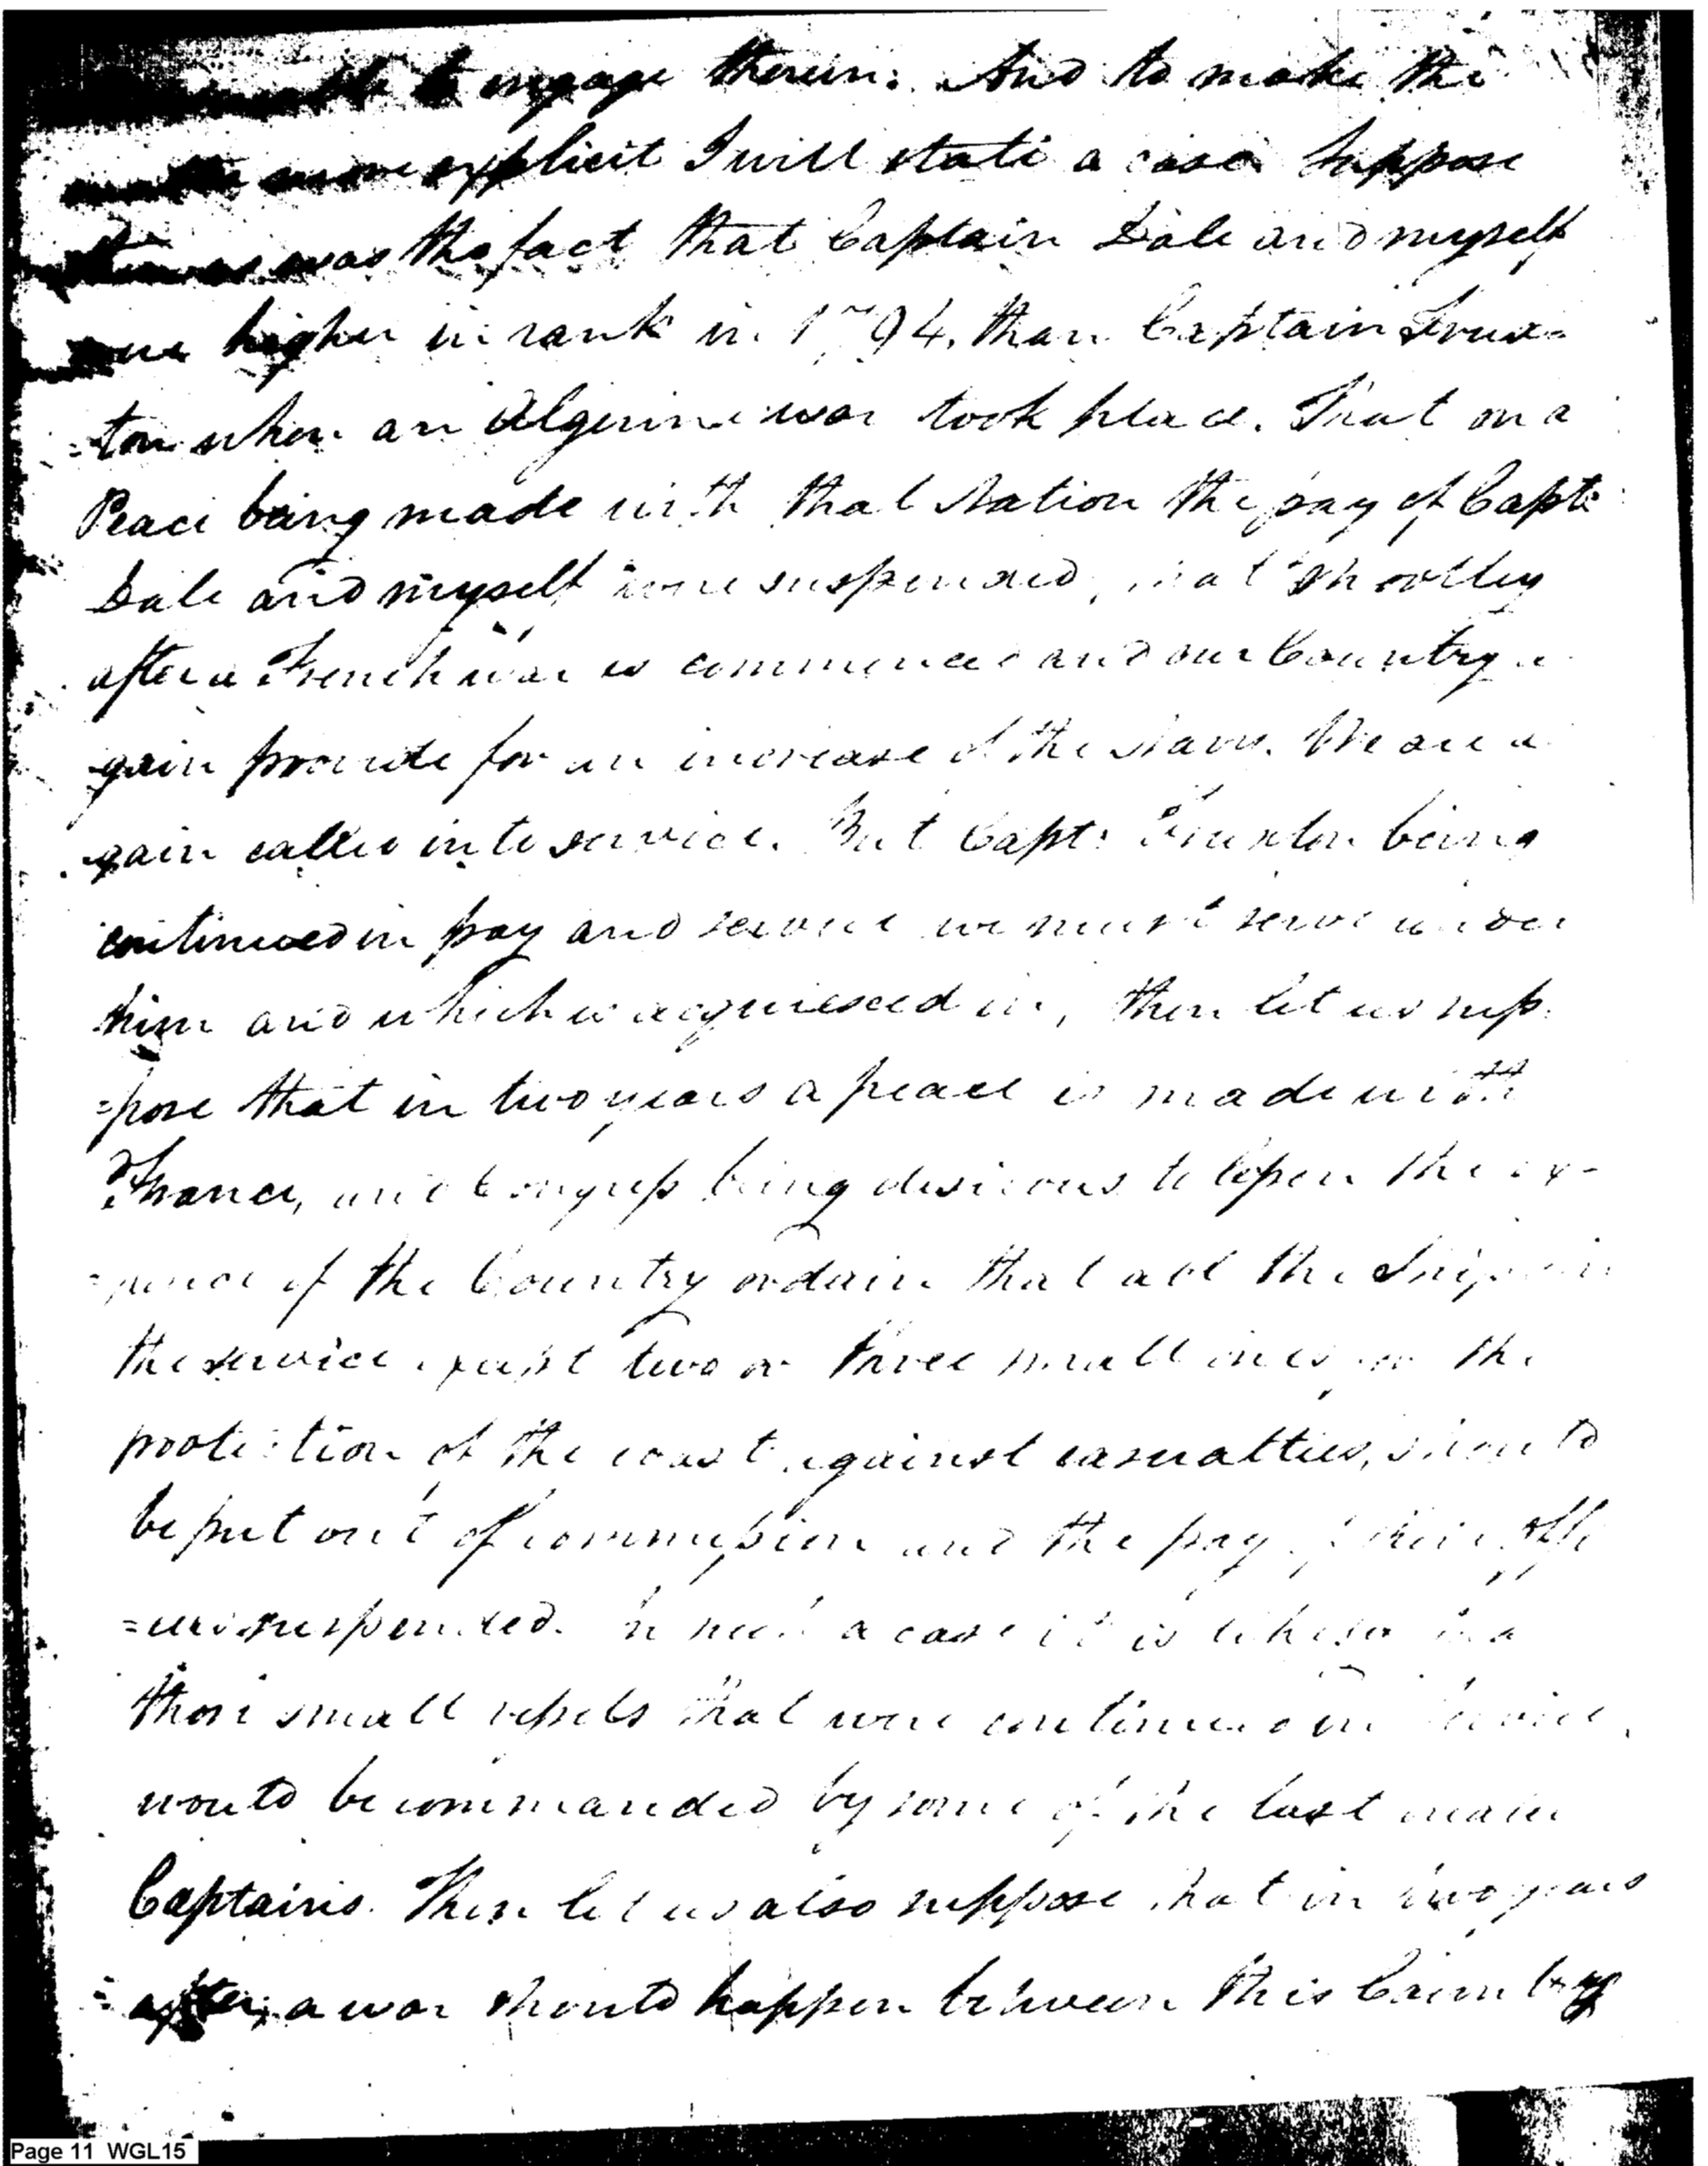 to engage therein. And to make the
more explicit I will state a case. Suppose
as was the fact that Captain Dale and myself
were higher in rank in 1794, than Captain Trux=
=ton when an Algerine war took place. That on a
Peace being made with that Nation the pay of Capt:
Dale and myself were suspended, that shortley
after a French war is commenced and our Country a
gain provide for an increase of the Navy. We are a
gain called into service. But Capt: Truxton being
continued in pay and service we must serve under
him and which is acquiesced in, then let us sup:
=pose that in two years a peace is made with
France, and Congress being desirous to lessen the ex-
=pence of the Country ordain that all the Ships in
the service, except two or three small ones for the
protection of the coast against casualties, should
be put out of commission and the pay of their offi
=cers suspended. In such a case it is likely
those small vessels that were continued in service,
would be commanded by some of the last made
Captains. Then let us also suppose that in two years
after, a war should happen between this Country
Page 11 WGL15